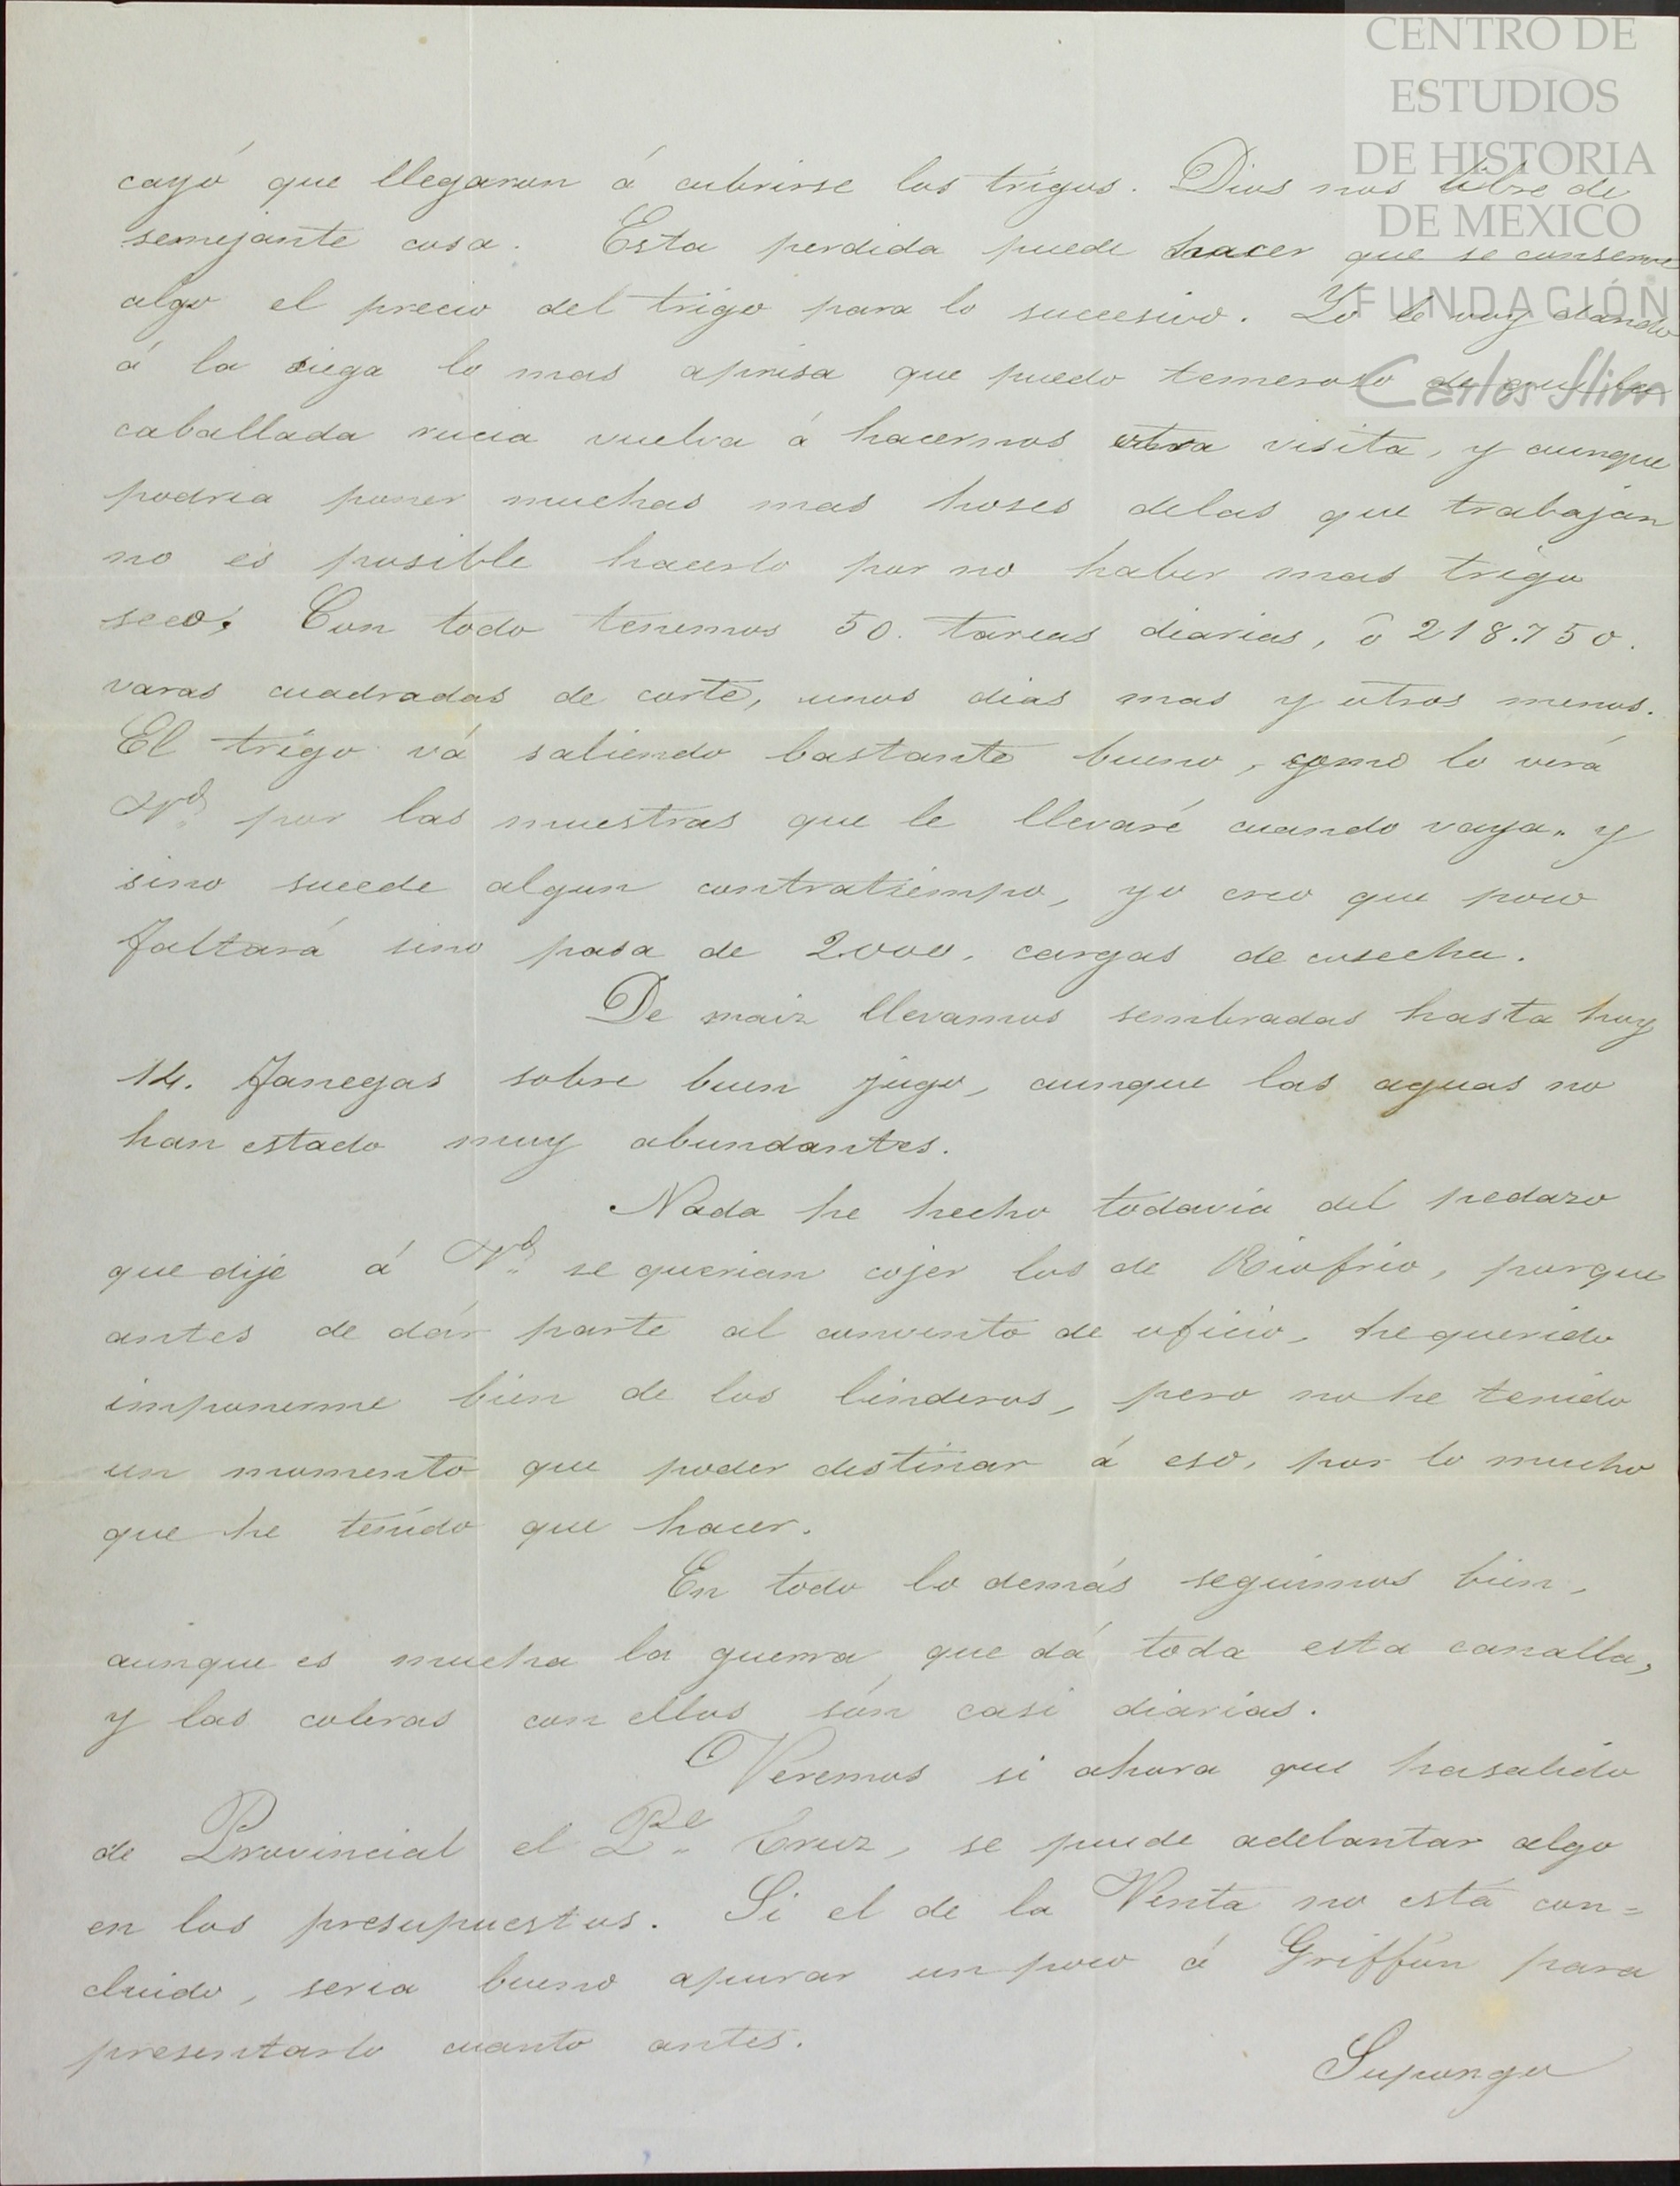 CENTRO DE
ESTUDIOS
DE HISTORIA
DE MEXICO
FUNDACIÓN
Carlos Slim
cayó que llegaron á cubrirse los trigos. Dios nos libre de
semejante cosa. Esta perdida puede hacer que se conserve
algo el precio del trigo para lo succesivo. Yo le voy dando
á la siega lo mas aprisa que puedo temeroso de que la
caballada rucia vuelva á hacernos otra visita, y aunque
podria poner muchas mas hoses delas que trabajan
no es posible hacerlo por no haber mas trigo
seco. Con todo tenemos 50. tareas diarias, ô 218.750.
varas cuadradas de corte, unos dias mas y otros menos.
El trigo vá saliendo bastante bueno, como lo verá
Vd. por las muestras que le llevaré cuando vaya.. y
sino sucede algun contratiempo, yo creo que poco
faltará sino pasa de 2.000. cargas de cosecha.
De maiz llevamos sembradas hasta hoy
14. fanegas sobre buen jugo, aunque las aguas no
han estado muy abundantes.
Nada he hecho todavia del pedazo
que dije á Vd. se querian cojer los de Riofrio, porque
antes de dár parte al convento de oficio, he querido
imponerme bien de los linderos, pero no he tenido
un momento que poder destinar á eso, por lo mucho
que he tenido que hacer.
En todo lo demás seguimos bien,
aunque es mucha la guerra que dá toda esta canalla,
y las coleras con ellos són casi diarias.
Veremos si ahora que hasalido
de Provincial el Pe. Cruz, se puede adelantar algo
en los presupuestos. Si el de la Venta no está con=
cluido, seria bueno apurar un poco á Griffon para
presentarlo cuanto antes.
Supongo